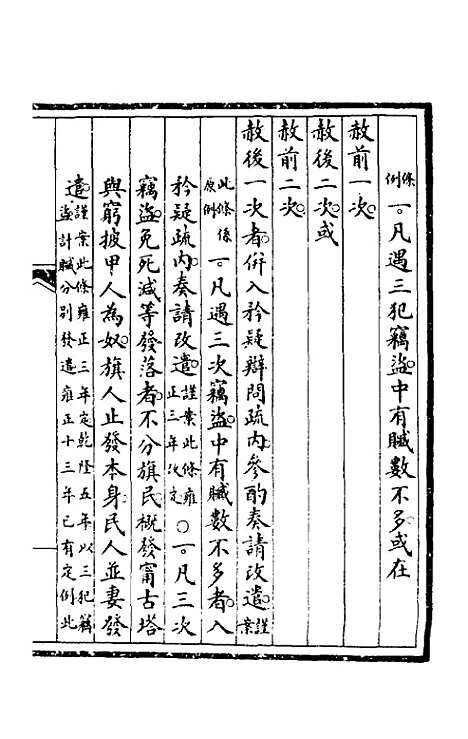 條例一。凡遇三犯竊盜。中有贓數不多。或在
赦前一次。
赦後二次。或
赦前二次。
赦後一次者。併入矜疑辯問疏內。參酌奏請改遣。謹案
此條係原例一。凡遇三次竊盜。中有贓數不多者。入
矜疑疏內。奏請改遣。謹案此條雍正三年改定〇一。凡三次
竊盜。免死減等發落者。不分旗民。槪發甯古塔
與窮披甲人為奴。旗人止發本身。民人並妻發
遣。謹案此條雍正三年定乾隆五年以三犯竊盜計贓分別發遣雍正十三年已有定例此